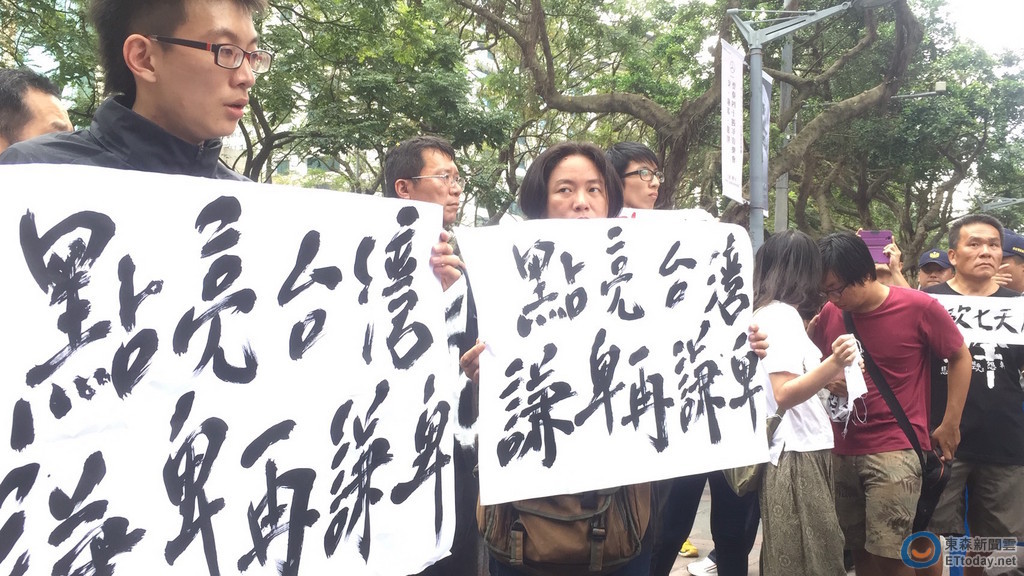 點亮台灣
謙卑再謙卑
點亮台灣
謙卑再謙卑
砍七天
東森新聞雲
ETtoday.net